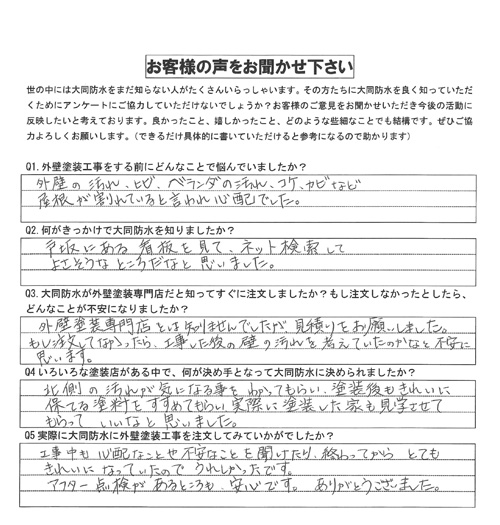 お客様の声をお聞かせ下さい
世の中には大同防水をまだ知らない人がたくさんいらっしゃいます。その方たちに大同防水を良く知っていただ
くためにアンケートにご協力していただけないでしょうか？お客様のご意見をお聞かせいただき今後の活動に
反映したいと考えております。良かったこと、嬉しかったこと、どのような些細なことでも結構です。ぜひご協
力よろしくお願いします。（できるだけ具体的に書いていただけると参考になるので助かります）
Q1.外壁塗装工事をする前にどんなことで悩んでいましたか？
外壁の汚れ、ヒビ、ベランダの汚れ、コケ、カビなど
屋根が割れていると言われ心配でした。
Q2.何がきっかけで大同防水を知りましたか？
戸坂にある看板を見て、ネット検索して
よさそうなところだなと思いました。
Q3.大同防水が外壁塗装専門店だと知ってすぐに注文しましたか？もし注文しなかったとしたら、
どんなことが不安になりましたか？
外壁塗装専門店とは知りませんでしたが、見積りをお願いしました。
もし注文してなかったら、工事した後の壁の汚れを考えていたのかなと不安に
思います。
Q4いろいろな塗装店がある中で、何が決め手となって大同防水に決められましたか？
北側の汚れが気になる事をわかってもらい、塗装後もきれいに
保てる塗料をすすめてもらい実際に塗装した家も見学させて
もらっていいなと思いました。
Q5実際に大同防水に外壁塗装工事を注文してみていかがでしたか？
工事中も心配なことや不安なことを聞けたり、終わってからとても
きれいになっていたのでうれしかったです。
アフター点検があるところも、安心です。ありがとうございました。